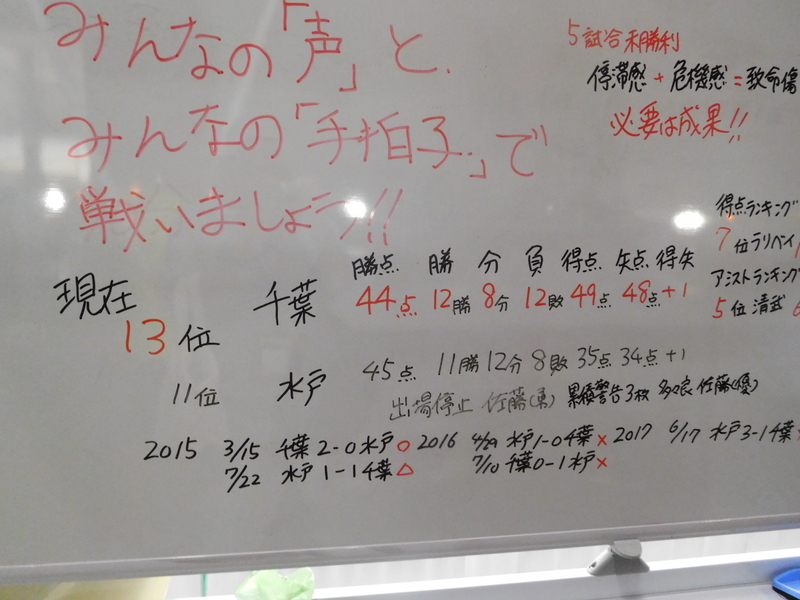 みんなの「声」と、
みんなの「手拍子」で
戦いましょう!!
5試合未勝利
停滞感+危機感=致命傷
必要は成果!!
得点ランキング
7位ラリベイ
アシストランキング
5位 清武
勝点 勝 分 負 得点 失点 得失
現在 13位 千葉 44点 12勝 8分 12敗 49点 48点 +1
11位 水戸 45点 11勝 12分 8敗 35点 34点 +1
出場停止 佐藤(勇) 累積警告3枚 多々良 佐藤(優)
2015 3/15 千葉 2-0 水戸○ 2016 4/29 水戸1-0千葉× 2017 6/17 水戸3-1千葉
7/22 水戸 1-1千葉△ 7/10 千葉0-1水戸×